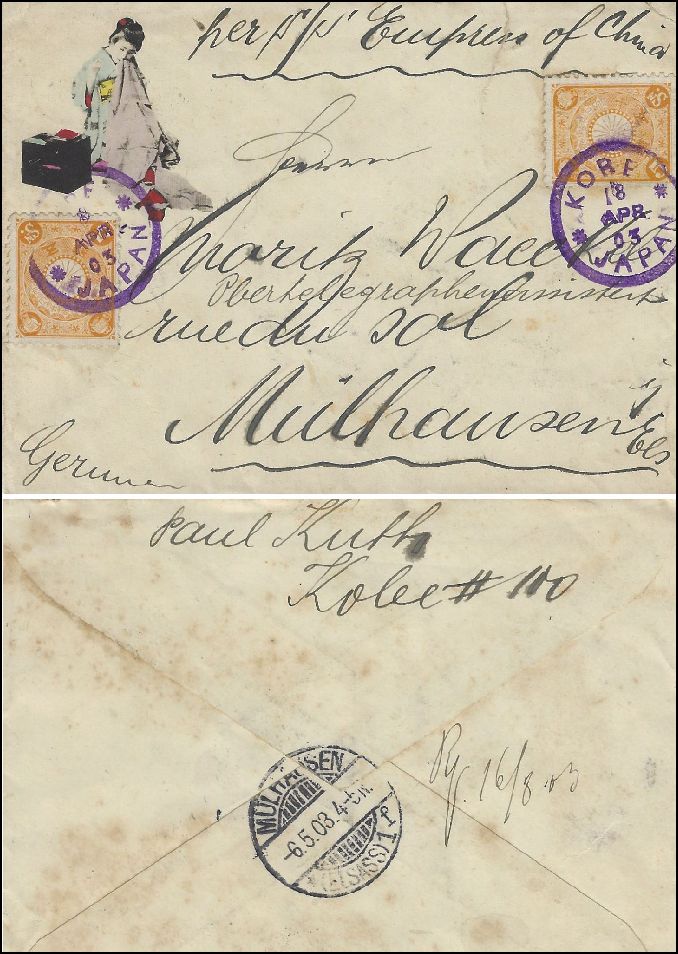 per S/S Empress of China
Herrn
KOBE
18
APR
03
JAPAN
APR
03
JAPAN
Moritz
rue du sol
Mülhausen i/
Els
German
Paul Kuth
Kobe # 100
MÜLHAUSEN
-6.5.03.4-5N.
(ELSASS) 1 f
16/8.03